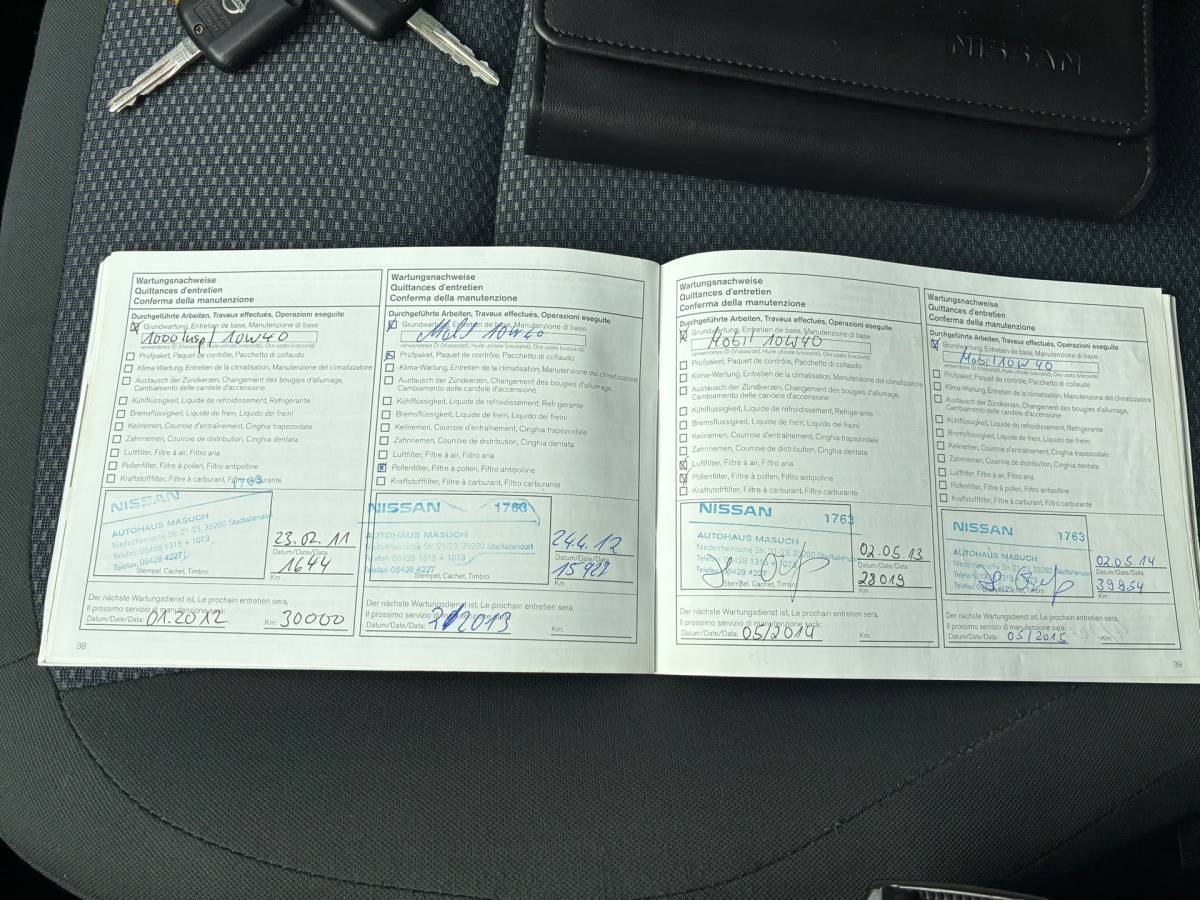 NISSAN
Wartungsnachweise
Quittances d'entretien
Conferma della manutenzione
Durchgeführte Arbeiten, Travaux effectués, Operazioni eseguite
Grundwartung, Entretien de base, Manutenzione di base
1000 Insp. 10W40
verwendetes Öl (Viskosität), Huile utilisée (viscosité), Olio usato (viscosità)
Prüfpaket, Paquet de contrôle, Pacchetto di collaudo
Klima-Wartung, Entretien de la climatisation, Manutenzione del climatizzatore
Austausch der Zündkerzen, Changement des bougies d'allumage,
Cambiamento delle candele d'accensione
Kühlflüssigkeit, Liquide de refroidissement, Refrigerante
Bremsflüssigkeit, Liquide de frein, Liquido dei freini
Keilriemen, Courroie d'entraînement, Cinghia trapezoidale
Zahnriemen, Courroie de distribution, Cinghia dentata
Luftfilter, Filtre à air, Filtro aria
Pollenfilter, Filtre à pollen, Filtro antipolline
Kraftstofffilter, Filtre à carburant, Filtro carburante
NISSAN 1763
AUTOHAUS MASUCH
Niederrheinische Str. 21-23, 35260 Stadtallendorf
Telefon: 06428 1315 + 1073
Telefax: 06428 4227
Stempel, Cachet, Timbro
23.02.11
Datum/Date/Data
1644
Km
Der nächste Wartungsdienst ist, Le prochain entretien sera,
Il prossimo servizio di manutenzione sarà:
Datum/Date/Data: 01.2012 Km: 30000
38
Wartungsnachweise
Quittances d'entretien
Conferma della manutenzione
Durchgeführte Arbeiten, Travaux effectués, Operazioni eseguite
Grundwartung, Entretien de base, Manutenzione di base
10W40
verwendetes Öl (Viskosität), Huile utilisée (viscosité), Olio usato (viscosità)
Prüfpaket, Paquet de contrôle, Pacchetto di collaudo
Klima-Wartung, Entretien de la climatisation, Manutenzione del climatizzatore
Austausch der Zündkerzen, Changement des bougies d'allumage,
Cambiamento delle candele d'accensione
Kühlflüssigkeit, Liquide de refroidissement, Refrigerante
Bremsflüssigkeit, Liquide de frein, Liquido dei freini
Keilriemen, Courroie d'entraînement, Cinghia trapezoidale
Zahnriemen, Courroie de distribution, Cinghia dentata
Luftfilter, Filtre à air, Filtro aria
Pollenfilter, Filtre à pollen, Filtro antipolline
Kraftstofffilter, Filtre à carburant, Filtro carburante
NISSAN 1763
AUTOHAUS MASUCH
Niederrheinische Str. 21-23, 35260 Stadtallendorf
Telefon: 06428 1315 + 1073
Telefax: 06428 4227
Stempel, Cachet, Timbro
24.4.12
Datum/Date/Data
Km
Der nächste Wartungsdienst ist, Le prochain entretien sera,
Il prossimo servizio di manutenzione sarà:
Datum/Date/Data: 2013 Km:
Wartungsnachweise
Quittances d'entretien
Conferma della manutenzione
Durchgeführte Arbeiten, Travaux effectués, Operazioni eseguite
Grundwartung, Entretien de base, Manutenzione di base
Mobil 10W40
verwendetes Öl (Viskosität), Huile utilisée (viscosité), Olio usato (viscosità)
Prüfpaket, Paquet de contrôle, Pacchetto di collaudo
Klima-Wartung, Entretien de la climatisation, Manutenzione del climatizzatore
Austausch der Zündkerzen, Changement des bougies d'allumage,
Cambiamento delle candele d'accensione
Kühlflüssigkeit, Liquide de refroidissement, Refrigerante
Bremsflüssigkeit, Liquide de frein, Liquido dei freini
Keilriemen, Courroie d'entraînement, Cinghia trapezoidale
Zahnriemen, Courroie de distribution, Cinghia dentata
Luftfilter, Filtre à air, Filtro aria
Pollenfilter, Filtre à pollen, Filtro antipolline
Kraftstofffilter, Filtre à carburant, Filtro carburante
NISSAN 1763
AUTOHAUS MASUCH
Niederrheinische Str. 21-23, 35260 Stadtallendorf
Stempel, Cachet, Timbro
02.05.13
Datum/Date/Data
28019
Km
Der nächste Wartungsdienst ist, Le prochain entretien sera,
Il prossimo servizio di manutenzione sarà:
Datum/Date/Data: 05/2014 Km:
Wartungsnachweise
Quittances d'entretien
Conferma della manutenzione
Durchgeführte Arbeiten, Travaux effectués, Operazioni eseguite
Grundwartung, Entretien de base, Manutenzione di base
Mobil 10W40
verwendetes Öl (Viskosität), Huile utilisée (viscosité), Olio usato (viscosità)
Prüfpaket, Paquet de contrôle, Pacchetto di collaudo
Klima-Wartung, Entretien de la climatisation, Manutenzione del climatizzatore
Austausch der Zündkerzen, Changement des bougies d'allumage,
Cambiamento delle candele d'accensione
Kühlflüssigkeit, Liquide de refroidissement, Refrigerante
Bremsflüssigkeit, Liquide de frein, Liquido dei freini
Keilriemen, Courroie d'entraînement, Cinghia trapezoidale
Zahnriemen, Courroie de distribution, Cinghia dentata
Luftfilter, Filtre à air, Filtro aria
Pollenfilter, Filtre à pollen, Filtro antipolline
Kraftstofffilter, Filtre à carburant, Filtro carburante
NISSAN 1763
AUTOHAUS MASUCH
Niederrheinische Str. 21-23, 35260 Stadtallendorf
Stempel, Cachet, Timbro
02.05.14
Datum/Date/Data
39854
Km:
Der nächste Wartungsdienst ist, Le prochain entretien sera,
Il prossimo servizio di manutenzione sarà:
Datum/Date/Data: 05/2015 Km:
39